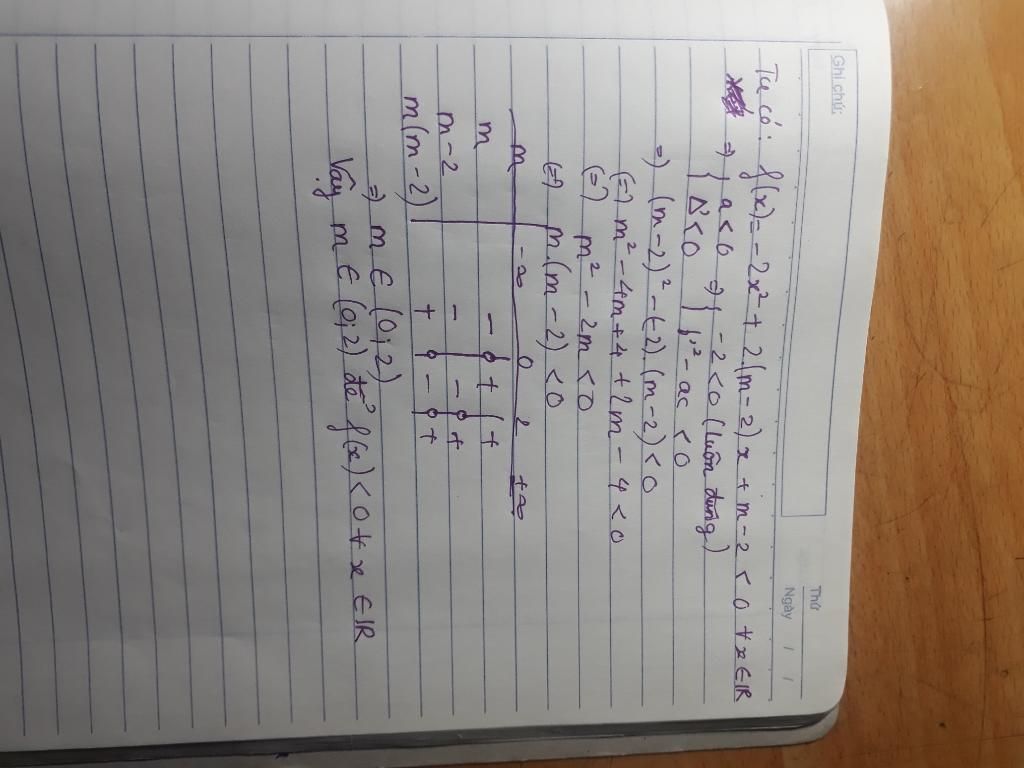 Ghi chú:
Thứ
Ngày / /
Ta có: f(x) = -2x² + 2.(m-2)x + m-2 < 0 ∀x∈ℝ
=> { a < 0 => { -2 < 0 (luôn đúng)
Δ' < 0 '² - ac < 0
=> (m-2)² - (-2).(m-2) < 0
(=) m² - 4m + 4 + 2m - 4 < 0
(=) m² - 2m < 0
(=) m.(m-2) < 0
m -∞ 0 2 +∞
m - 0 + | +
m-2 - | - 0 +
m(m-2) + 0 - 0 +
=> m ∈ (0;2)
Vậy m ∈ (0;2) để f(x) < 0 ∀ x ∈ ℝ